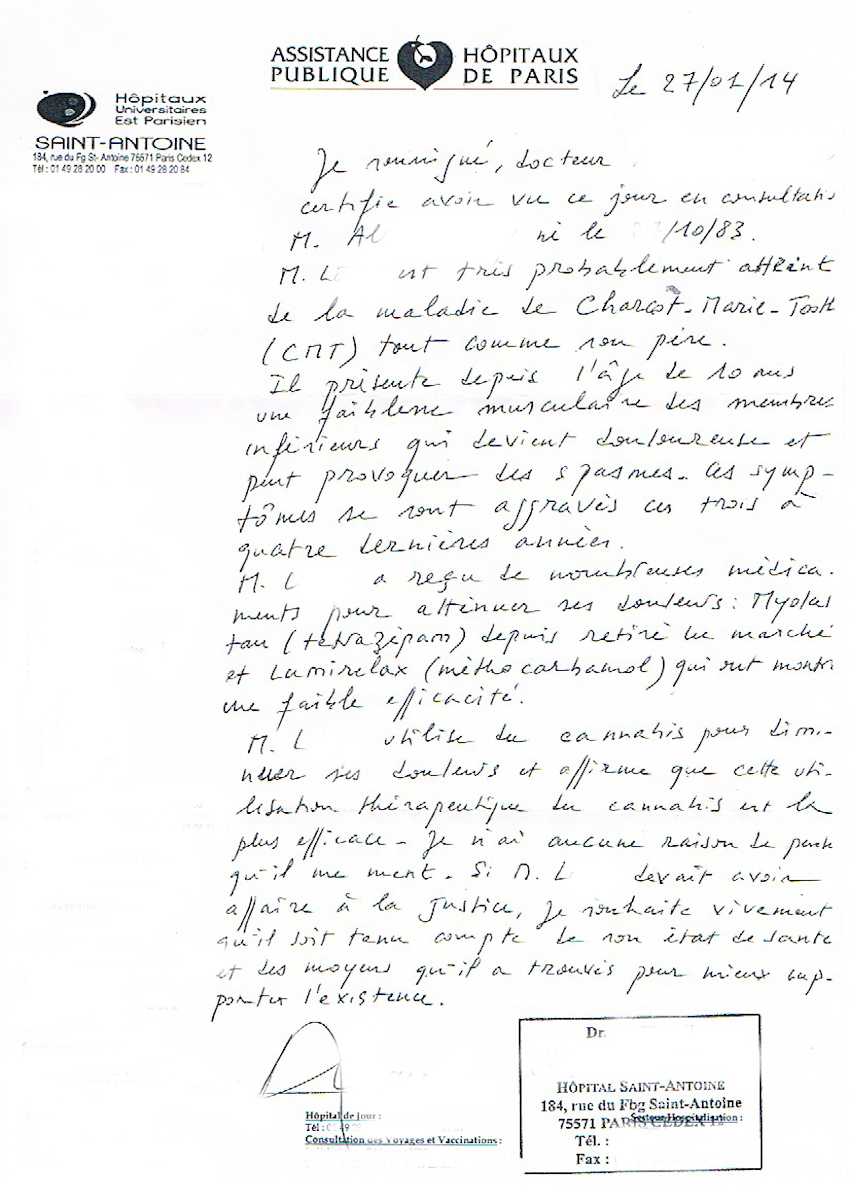 ASSISTANCE PUBLIQUE HÔPITAUX DE PARIS
Le 27/01/14
Hôpitaux
Universitaires
Est Parisien
SAINT-ANTOINE
184, rue du Fg St- Antoine 75571 Paris Cedex 12
Tél : 01 49 28 20 00 Fax : 01 49 28 20 84
Je soussigné, docteur
certifie avoir vu ce jour en consultatio
M. Al né le /10/83.
M. L est très probablement atteint
de la maladie de Charcot-Marie-Tooth
(CMT) tout comme son père.
Il présente depuis l'âge de 10 ans
une faiblesse musculaire des membres
inférieurs qui devient douloureuse et
peut provoquer des spasmes. Ces symp-
tômes se sont aggravés ces trois à
quatre dernières années.
M. L a reçu de nombreuses médica-
ments pour atténuer ses douleurs : Myolas
tan (tétrazépam) depuis retiré du marché
et Lumirelax (méthocarbamol) qui ont montr
une faible efficacité.
M. L utilise du cannabis pour dimi-
nuer ses douleurs et affirme que cette uti-
lisation thérapeutique du cannabis est la
plus efficace. Je n'ai aucune raison de
qu'il me ment. Si M. L devait avoir
affaire à la Justice, je souhaite vivement
qu'il soit tenu compte de son état de santé
et des moyens qu'il a trouvés pour mieux sup-
porter l'existence.
Hôpital de Jour :
Tél : 01 49
Consultation des Voyages et Vaccinations :
Dr.
HÔPITAL SAINT-ANTOINE
184, rue du Fbg Saint-Antoine
Secteur Hospitalisation :
75571 PARIS CEDEX 12
Tél. :
Fax :